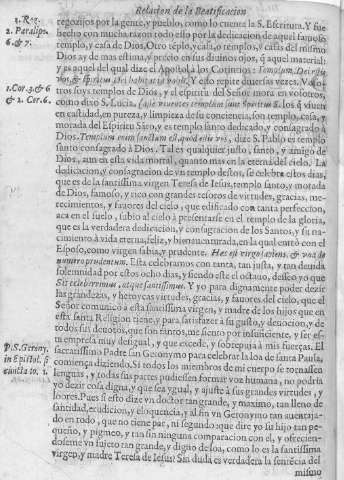 Relacion de la Beatificacion
1. Reg.
2. Paralip.
6. & 7.
regozijos por la gente, y pueblo, como lo cuenta la S. Escritura. Y fue
hecho con mucha razon todo esso por la dedicacion de aquel famoso
templo, y casa de Dios. Otro templo, y casa, o templos, y casas del mismo
Dios ay mas excelentes, y preciosas que fue a sus divinos ojos, aquel material:
y es aquel del qual dize el Apostol a los Corintios: Templum Dei
vos, & spiritus Dei habitat in vobis. Y esto repite diversas vezes. Vos
1. Cor. 3. & 6
& 2. Cor. 6.
otros soys templos de Dios, y el espiritu del Señor mora en vosotros,
como dixo S. Lucia. Caste viventes templum sunt Spiritus S. los que viven
en castidad, en pureza, y limpieza de su conciencia, son templo, casa, y
morada del Espiritu Santo, y es templo santo dedicado, y consagrado à
Dios. Templum enim sanctum est, quod estis vos, dize S. Pablo es templo
santo consagrado à Dios. Tal es qualquier justo, santo, y amigo de
Dios, aun en esta vida mortal, quanto mas en la eterna del cielo. La
dedicacion, y consagracion de un templo destos, se celebra estos dias,
que es de la santissima virgen Teresa de Iesus, templo santo, y morada
de Dios, famoso, y rico con grandes tesoros de virtudes, gracias, me-
recimientos, y favores del cielo, que edificado con tanta perfeccion,
aca en el suelo, subio al cielo à presentarse en el templo de la gloria,
que es la verdadera dedicacion, y consagracion de los Santos, y su na-
cimiento à vida eterna, feliz, y bienaventurada, en la qual entrò con el
Esposo, como virgen sabia, y prudente. Hæc est virgo sapiens, & una de
numero prudentum. Esta celebramos con tanta, tan justa, y tan devida
solemnidad por estos ocho dias, y siendo este el octavo, desseo yo que
Sit celeberrimus, atque sanctissimus. Y yo para dignamente poder dezir
las grandezas, y heroycas virtudes, gracias, y favores del cielo, que el
Señor comunicò a esta santissima virgen, y madre de los hijos que en
esta santa Religion tiene, y para satisfazer à su gusto, y devocion, y de
todos sus devotos, que son tantos, me siento por insuficiente, y ser esta
empresa muy desigual, y que excede, y sobrepuja à mis fuerças. El
P. S. Gerony.
in Epistol.
sacratissimo Padre san Geronymo para celebrar la loa de santa Paula,
comiença diziendo, Si todos los miembros de mi cuerpo se tornassen
lenguas, y todas sus partes pudiessen formar voz humana, no podria
yo dezir cosa digna, y que sea ygual, y ajuste à sus grandes virtudes, y
loores. Pues si esto dize un doctor tan grande, y maximo, tan lleno de
santidad, erudicion, y eloquencia, y al fin un Geronymo tan aventaja-
do en todo, que no tiene par, ni segundo: que dirè yo su hijo tan pe-
queño, y pigmeo, y tan sin ninguna comparacion con el, y ofrecien-
doseme un sujeto tan grande, y digno de loa, como lo es la santissima
virgen, y madre Teresa de Iesus: Sin duda es verdadera la sentẽcia del
mismo